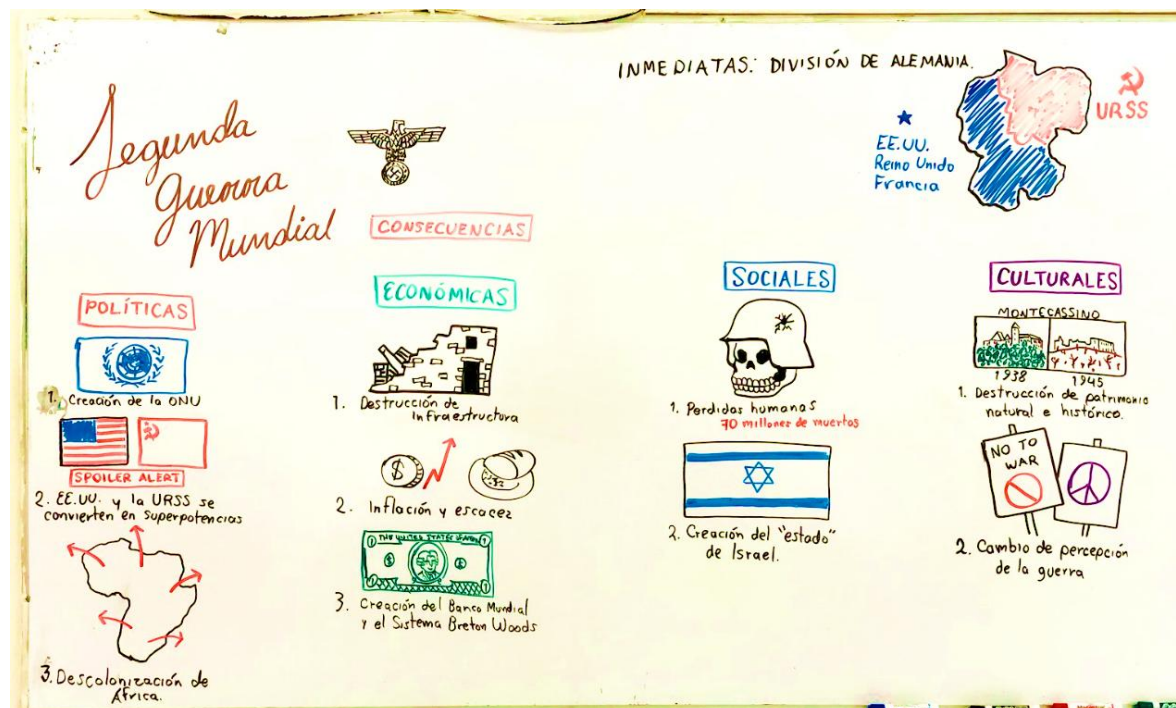 Segunda
Guerra
Mundial
INMEDIATAS: DIVISIÓN DE ALEMANIA.
URSS
EE.UU.
Reino Unido
Francia
CONSECUENCIAS
POLÍTICAS
1. Creación de la ONU
SPOILER ALERT
2. EE.UU. y la URSS se
convierten en superpotencias
3. Descolonización de
África.
ECONÓMICAS
1. Destrucción de
infraestructura
$
2. Inflación y escacez
1 THE UNITED STATES 1
$ $
1 1
3. Creación del Banco Mundial
y el Sistema Breton Woods
SOCIALES
1. Perdidas humanas
70 millones de muertos
2. Creación del "estado"
de Israel.
CULTURALES
MONTECASSINO
1938 1945
1. Destrucción de patrimonio
natural e histórico.
NO TO
WAR
2. Cambio de percepción
de la guerra